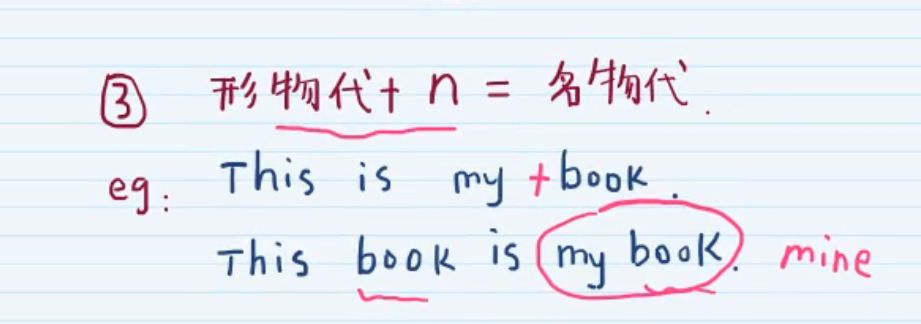 ③ 形物代+ n = 名物代.
eg: This is my + book.
This book is my book. mine